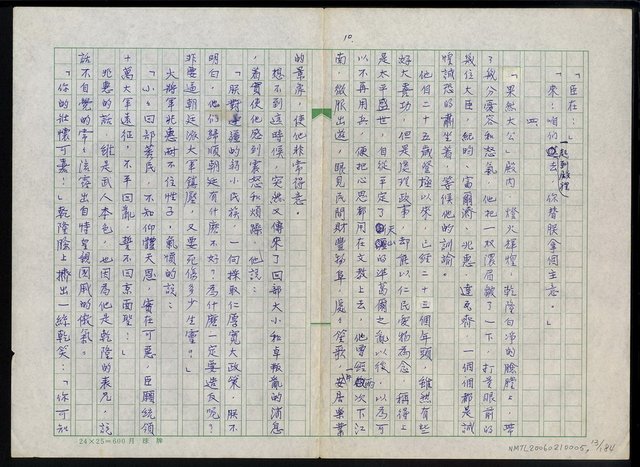 10.
「臣在:」
「來!咱們一起到殿裡去,你替朕拿個主意。」
四
「果然大公」殿內,燈火輝煌,乾隆白淨的臉膛上,帶
了幾分憂容和怒氣,他把一枚
打量眼前的
幾位大臣,紀昀、富爾濟、兆惠、達克齊,一個個都是誠
惶誠恐的肅坐着,等候他的訓諭。
他自二十五歲登極以來,已經二十三個年頭,雖然有些
好大喜功,但是處理政事,卻能以仁民愛物為念,稱得上
是太平盛世,自從平定了天山的準葛爾之亂以後,以為可
以不再用兵,便把心思都用在文教上去,他曾經兩次下江
南,微服出遊,眼見民間財豐物阜,處處笙歌,一片安居樂業
的景席,使他非常得意。
想不到這時候,突然又傳來了回部大小和卓叛亂的消息
,着實使他感到震怒和煩躁,他說:
「朕對邊疆的弱小民族,一向採取仁厚寬大政策,朕不
明白,他們歸順朝廷有什麼不好?為什麼一定要造反呢?
非要逼朝廷派大軍鎮壓,又要死傷多少生靈?」
大將軍兆惠耐不住性子,氣憤的說:
「小小回部蕃民,不知仰體天恩,實在可惡,臣願統領
十萬大軍遠征,不平回亂,誓不回京面聖:」
兆惠的話,雖是武人本色,也因為他是乾隆的表兄,說
話不自覺的常常流露出自恃皇親國戚的傲氣。
「你的壯懷可嘉:」乾隆臉上擠出一絲乾笑:「你可知
24×25=600 月球牌
NMTL20060210005, 13/184